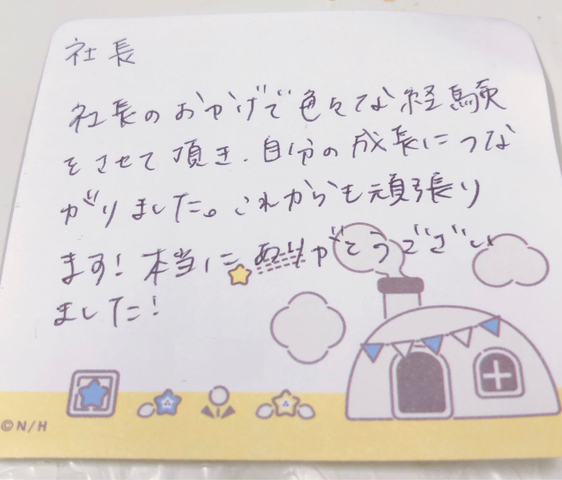 社長
社長のおかげで色々な経験
をさせて頂き、自分の成長につな
がりました。これからも頑張り
ます！本当にありがとうござい
ました！
©N/H